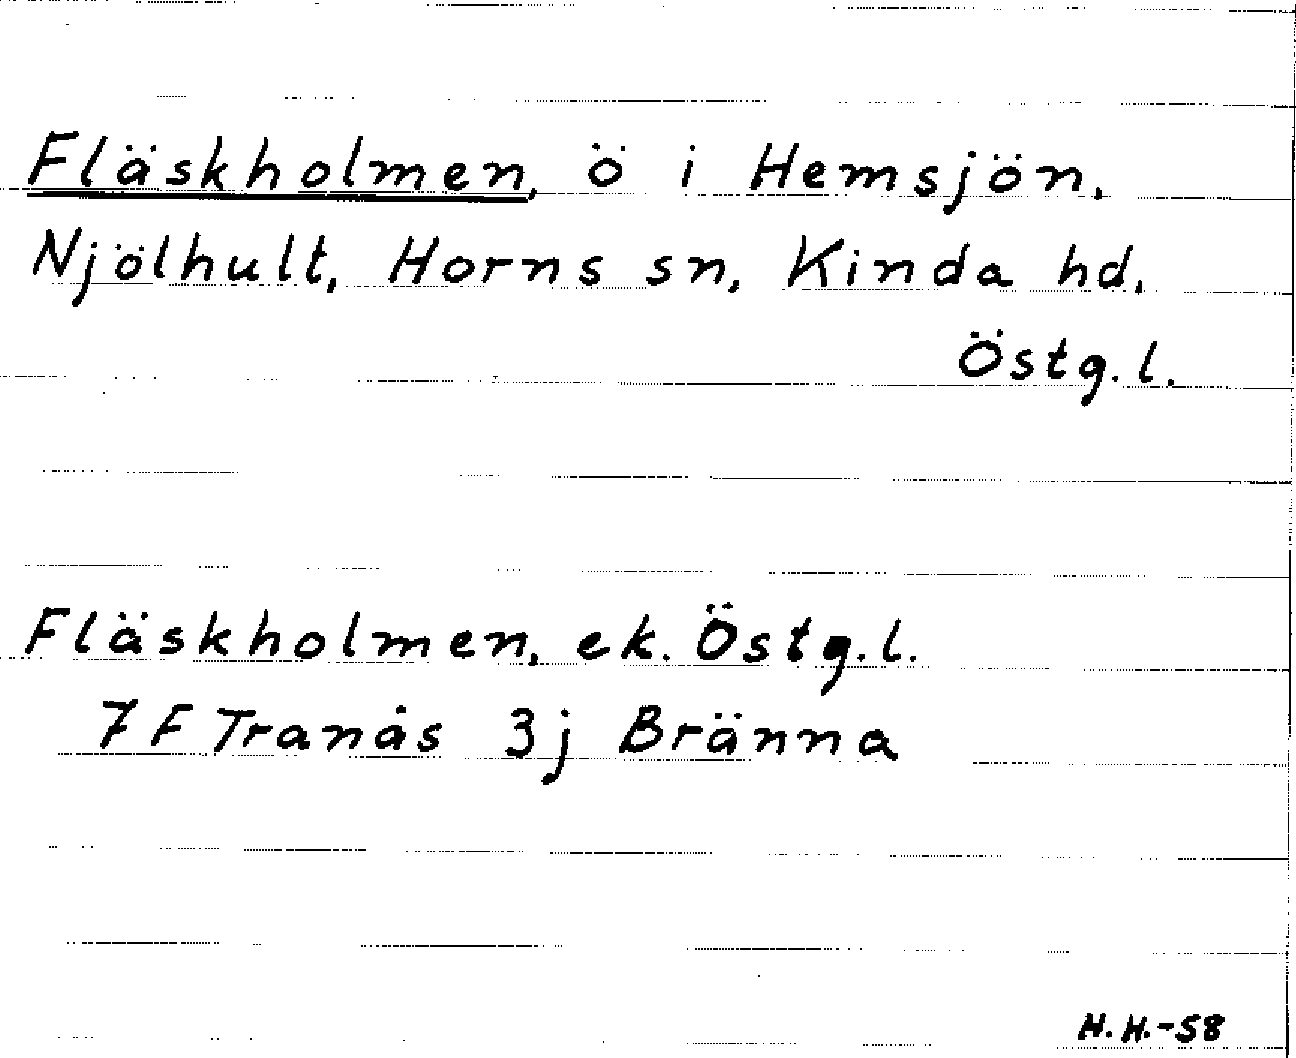 Fläskholmen, ö i Hemsjön,
Njölhult, Horns sn, Kinda hd,
Östg.l.
Fläskholmen, ek. Östg.l.
7 F Tranås 3j Bränna
H.H.-58